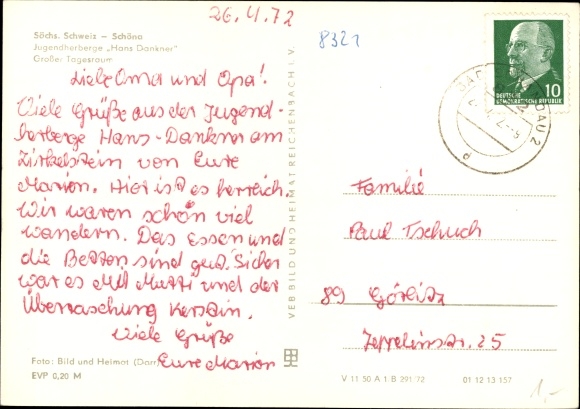 26.4.72
8321
Sächs. Schweiz – Schöna
Jugendherberge „Hans Dankner"
Großer Tagesraum
Liebe Oma und Opa!
Viele Grüße aus der Jugend-
herberge Hans-Dankner am
Zirkelstein von Eure
Marion. Hier ist es herrlich.
Wir waren schön viel
wandern. Das Essen und
die Betten sind gut. Sicher
war es mit Mutti und der
Überraschung Kerstin.
Viele Grüße
Eure Marion
Foto: Bild und Heimat
EVP 0,20 M
VEB BILD UND HEIMAT REICHENBACH I. V.
10
DEUTSCHE
DEMOKRATISCHE REPUBLIK
Familie
Paul Tschuch
89 Görlitz
Zeppelinstr. 25
V 11 50 A 1 B 291/72
01 12 13 157
1,-